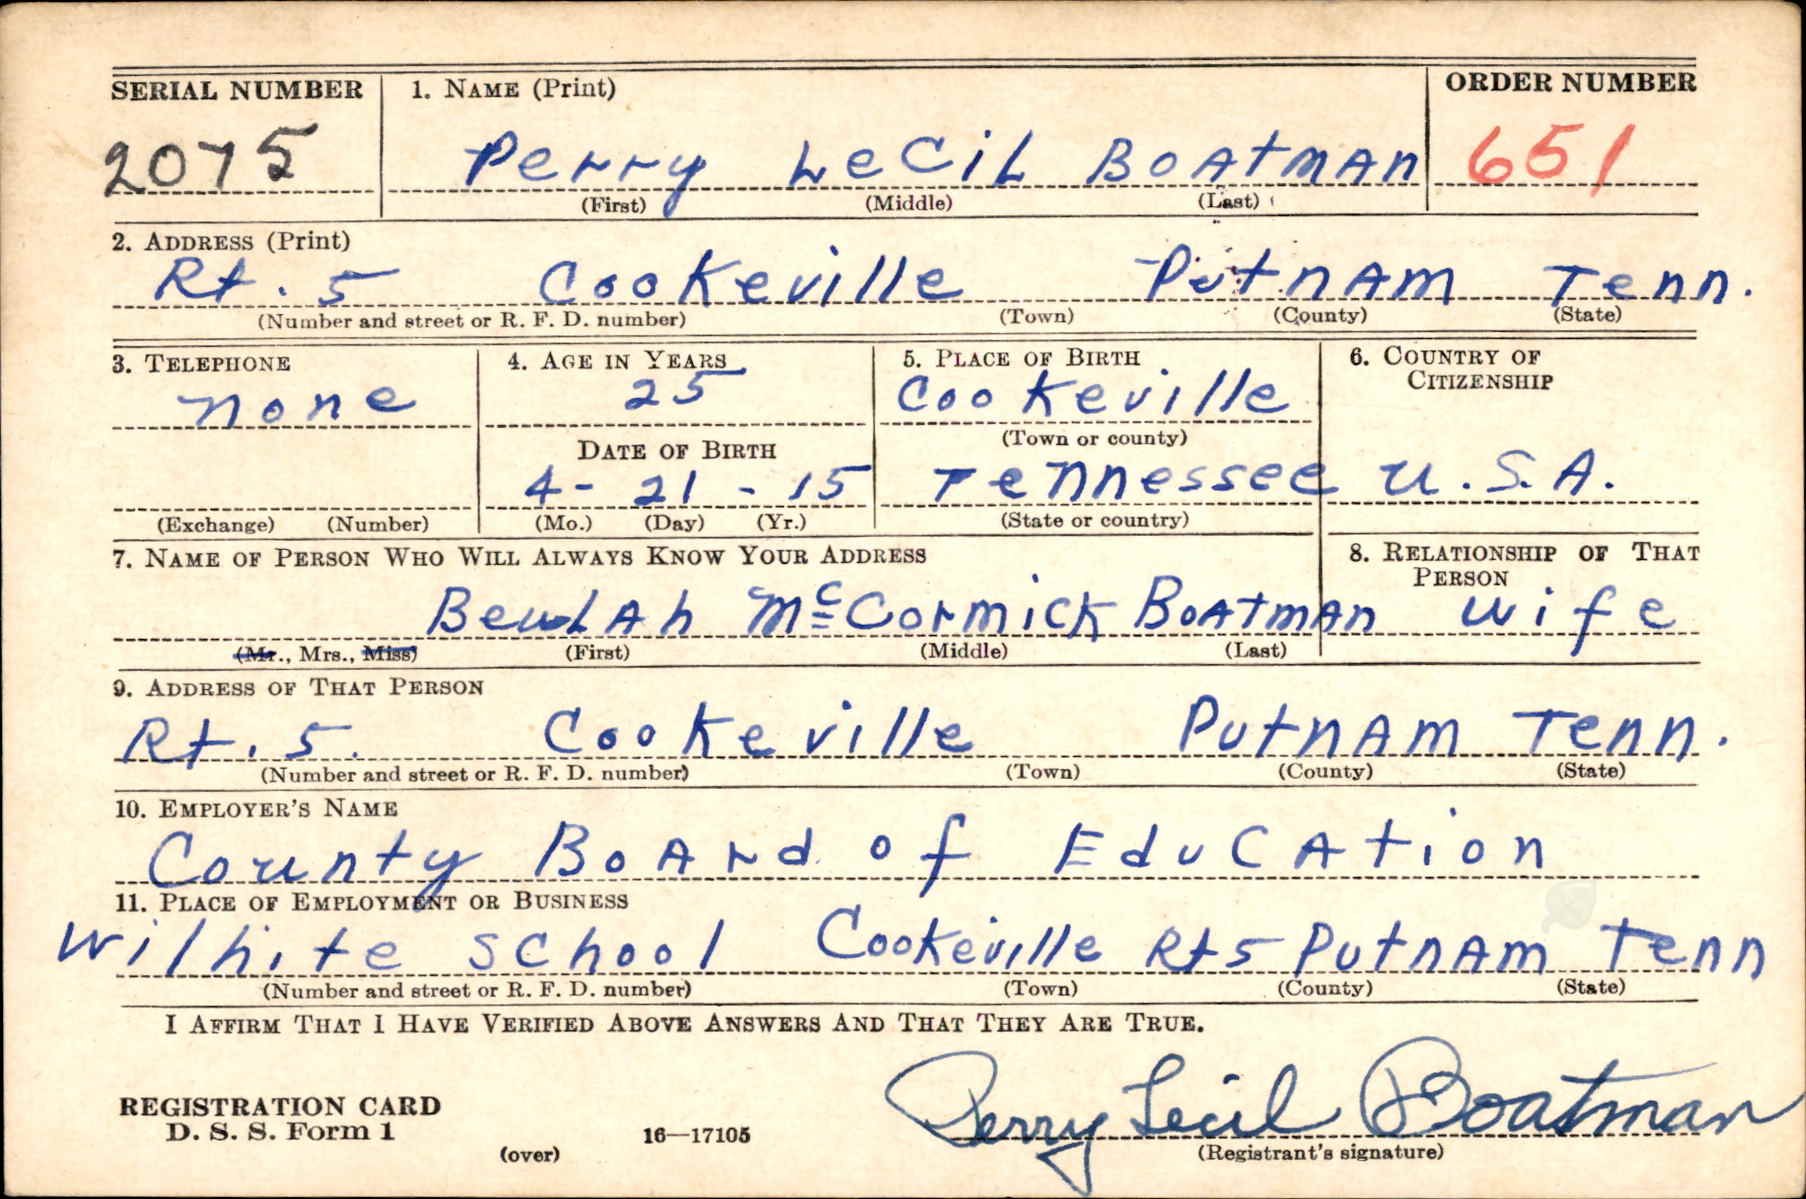 SERIAL NUMBER 1. NAME (Print) ORDER NUMBER
2075 Perry LeCiL BOATMAN 651
(First) (Middle) (Last)
2. ADDRESS (Print)
Rt. 5 Cookeville PutnAM Tenn.
(Number and street or R. F. D. number) (Town) (County) (State)
3. TELEPHONE 4. AGE IN YEARS 5. PLACE OF BIRTH 6. COUNTRY OF
CITIZENSHIP
none 25 Cookeville
DATE OF BIRTH (Town or county)
4 - 21 - 15 Tennessee U.S.A.
(Exchange) (Number) (Mo.) (Day) (Yr.) (State or country)
7. NAME OF PERSON WHO WILL ALWAYS KNOW YOUR ADDRESS 8. RELATIONSHIP OF THAT
PERSON
BeuLAh McCormick BOATMAN wife
(Mr., Mrs., Miss) (First) (Middle) (Last)
9. ADDRESS OF THAT PERSON
Rt. 5. Cookeville PutnAM Tenn.
(Number and street or R. F. D. number) (Town) (County) (State)
10. EMPLOYER'S NAME
County BoArd of EduCAtion
11. PLACE OF EMPLOYMENT OR BUSINESS
Wilhite School Cookeville Rt 5 PutnAM Tenn
(Number and street or R. F. D. number) (Town) (County) (State)
I AFFIRM THAT I HAVE VERIFIED ABOVE ANSWERS AND THAT THEY ARE TRUE.
Perry Lecil Boatman
REGISTRATION CARD
D. S. S. Form 1 16—17105
(over) (Registrant's signature)